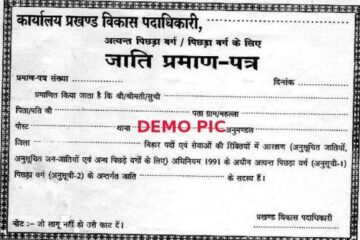 कार्यालय प्रखण्ड विकास पदाधिकारी,
अत्यन्त पिछड़ा वर्ग / पिछड़ा वर्ग के लिए
जाति प्रमाण-पत्र
प्रमाण-पत्र संख्या दिनांक
प्रमाणित किया जाता है कि श्री/श्रीमती/सुश्री
पिता/पति श्री पता ग्राम/महल्ला
पोस्ट थाना DEMO PIC अनुमण्डल
जिला बिहार पदों एवं सेवाओं की रिक्तियों में आरक्षण (अनुसूचित जातियों,
अनुसूचित जन-जातियों एवं अन्य पिछड़े वर्गों के लिए) अधिनियम 1991 के अधीन अत्यन्त पिछड़ा वर्ग (अनुसूची-1)
पिछड़ा वर्ग (अनुसूची-2) के अन्तर्गत जाति के सदस्य हैं।
प्रखण्ड विकास पदाधिकारी
नोट :- जो लागू नहीं हो उसे काट दें।